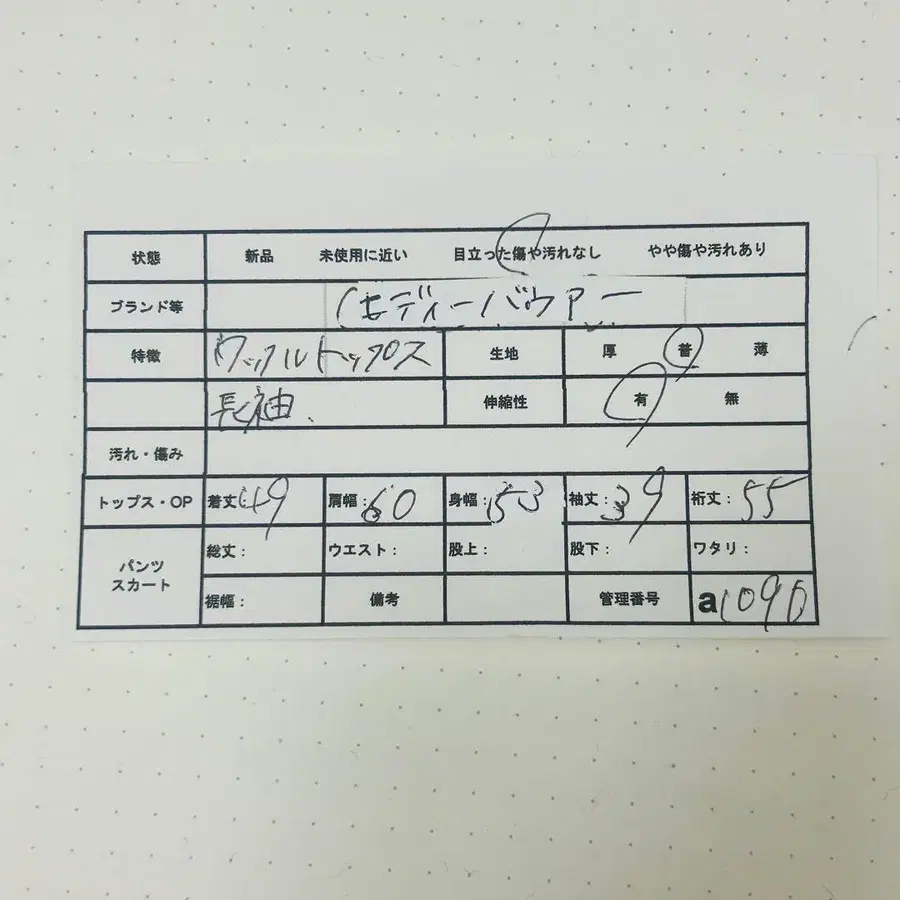 状態 新品 未使用に近い 目立った傷や汚れなし やや傷や汚れあり
ブランド等 ィーバウアー
特徴 ワッフルトップス 生地 厚 普 薄
長袖、 伸縮性 有 無
汚れ・傷み
トップス・OP 着丈 49 肩幅: 60 身幅: 53 袖丈: 39 裄丈: 55
パンツ スカート 総丈: ウエスト: 股上: 股下: ワタリ:
裾幅: 備考 管理番号 a1090